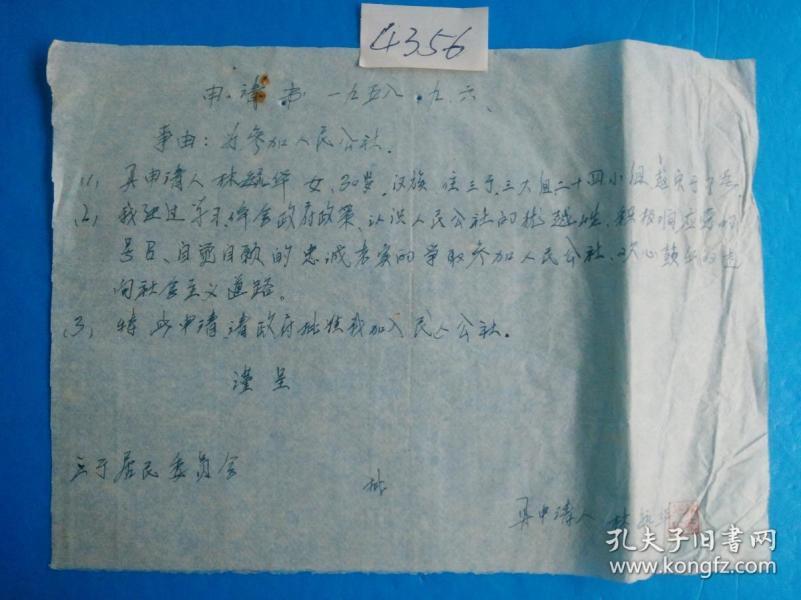 4356
申请书 一九五八.九.六.
事由：为参加人民公社.
(1) 具申请人林毓华 女、30岁、汉族 住三于、三大组二十四小组
(2) 我通过学习体会政府政策、认识人民公社的优越性、积极响应党的
号召、自觉自愿的忠诚老实的争取参加人民公社、决心鼓足的走
向社会主义道路。
(3) 特此申请、请政府批准我加入民公社.
谨呈
三于居民委员会
具申请人 林毓华
孔夫子旧书网
www.kongfz.com